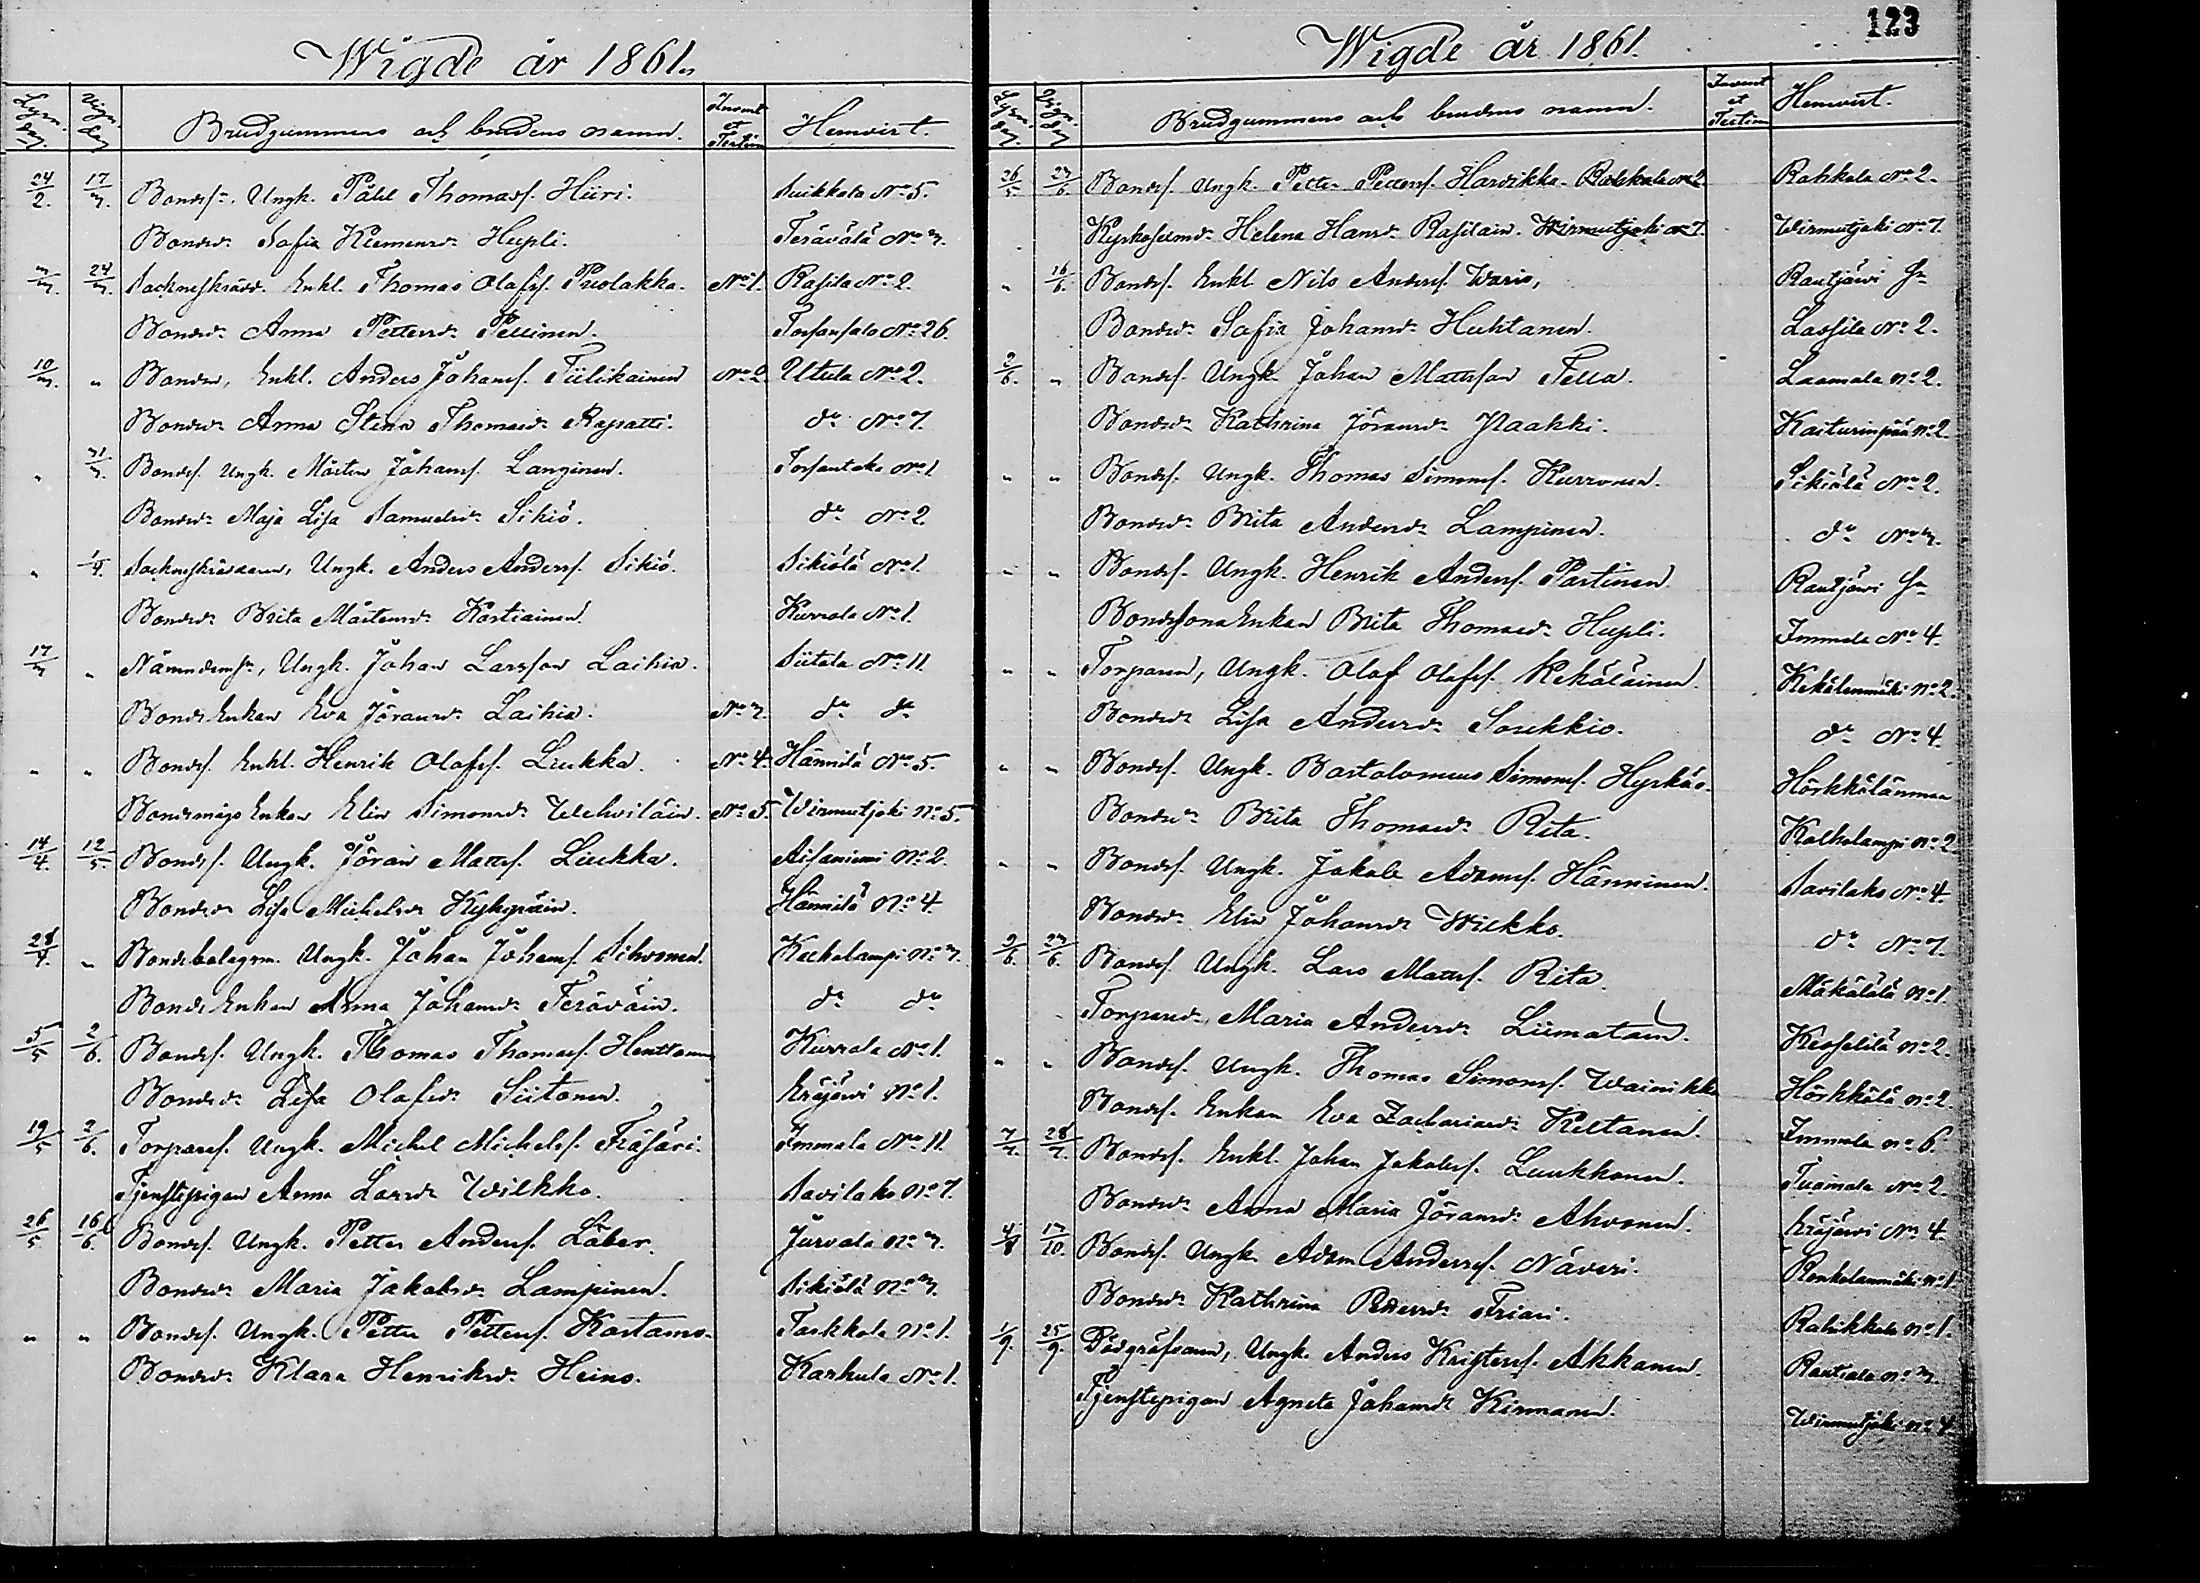 123
Wigde år 1861.
Lysn. dag. Vign. dag Brudgummens och brudens namn. Invent et Testim Hemvist.
24/2. 17/3. Bondes. Ungk. Påhl Thomass. Hiiri. Suikkala No 5.
Bonded. Sofia Klemensd. Hupli. Terävälä No 3.
3/3. 24/3. Enkl. Thomas Olofss. Puolakka. No 1. Rasila No 2.
Bonded. Anna Pettersd. Pellinen. Torsansalo No 26.
10/3. " Bonden, Enkl. Anders Johanss. Tiilikainen No 2. Utula No 2.
Bonded. Anna Stina Thomasd. Rapatti. do No 7.
" 31/3. Bondes. Ungk. Mårten Johanss. Langinen. No 1
Bonded. Maja Lisa Samuelsd. Sikiö. do No 2.
" 1/4. Ungk. Anders Anderss. Sikiö. Sikiölä No 1.
Bonded. Brita Mårtensd. Kostiainen. Kurrola No 1.
17/3 " Ungk. Johan Larsson Laihia. Siitola No 11.
Bonde Enkan Eva Jöransd. Laihia. No 3. do do
" " Bondes. Enkl. Henrik Olofss. Liukka. No 4. Hännilä No 5.
Bondemågs Enkan Elin Simonsd. Wehviläin. No 5. Wirmutjoki No 5.
14/4. 12/5. Bondes. Ungk. Jöran Matts. Liukka. Aisaniemi No 2.
Bonded. Lisa Michelsd. Kyhypäin. Hännilä No 4.
28/4. " Bondebolagsm. Ungk. Johan Johanss. Sihvonen. No 3.
Bonde Enkan Anna Johansd. Teräväin. do do
5/5 2/6. Bondes. Ungk. Thomas Thomass. Henttonen Kurrola No 1.
Bonded. Lisa Olofsd. Siitonen. Eräjärvi No 1.
19/5 2/6. Torpares. Ungk. Michel Michelss. Träsäri. Immala No 11.
Tjenstepigan Anna Larsd. Wilkko. Savilaks No 7.
26/5 16/6. Bondes. Ungk. Petter Anderss. Läber. Jurvala No 3.
Bonded. Maria Jakobsd. Lampinen. Sikiölä No 3.
" " Bondes. Ungk. Petter Petters. Kortamo. No 1.
Bonded. Klara Henriksd. Heino. Karhula No 1.
Wigde år 1861.
Lysn. dag. Vign. dag. Brudgummens och brudens namn. Invent et Testim Hemvist.
26/5 23/6 Bondes. Ungk. Petter Petters. Harvikka. Rahkola No 2 Rahkola No 2.
Helena Hansd. Rasilain. Wirmutjoki No 7. Wirmutjoki No 7.
" 16/6. Bondes. Enkl. Nils Anderss. Waris, Rautjärvi Sn
Bonded. Sofia Johansd. Huhtanen. Lassila No 2.
2/6. " Bondes. Ungk. Johan Mattsson Tella. Laamala No 2.
Bonded. Kathrina Jöransd. Naakki. Kaiturinpää No 2.
" " Bondes. Ungk. Thomas Simonss. Kurronen. Sikiölä No 2.
Bonded. Brita Andersd. Lampinen. do No 3.
" " Bondes. Ungk. Henrik Anderss. Partinen. Rautjärvi Sn
Bondesons Enkan Brita Thomasd. Hupli. Immala No 4.
" " Torparen, Ungk. Olof Olofss. Kekäläinen. Kekälenmäki No 2.
Bonded. Lisa Andersd. Soukkio. do No 4.
" " Bondes. Ungk. Bartolomeus Simonss. Hyrkäs. Hörkkölänmaa
Bonded. Brita Thomasd. Rita. Kolholampi No 2
" " Bondes. Ungk. Jakob Adamss. Hänninen. Savilaks No 4.
Bonded. Elin Johansd. Wilkko. do No 7.
9/6. 23/6. Bondes. Ungk. Lars Matts. Rita. Mäkälälä No 1.
Torpared. Maria Andersd. Liimatain. No 2.
" " Bondes. Ungk. Thomas Simonss. Wainikka Hörkkölä No 2.
Bondes. Enkan Eva Zachariasd. Keltanen. Immala No 6.
7/7. 28/7. Bondes. Enkl. Johan Jakobss. Luukkonen. No 2.
Bonded. Anna Maria Jöransd. Ahvonen. Eräjärvi No 4.
4/8 13/10. Bondes. Ungk. Adam Anderss. Näveri. No 1.
Bonded. Kathrina Pettersd. Friari. Rahikkala No 1.
1/9. 25/9. Ungk. Anders Kristerss. Akkanen. Rautiala No 3.
Tjenstepigan Agneta Johansd. Kinnanen. Wirmutjoki No 4.